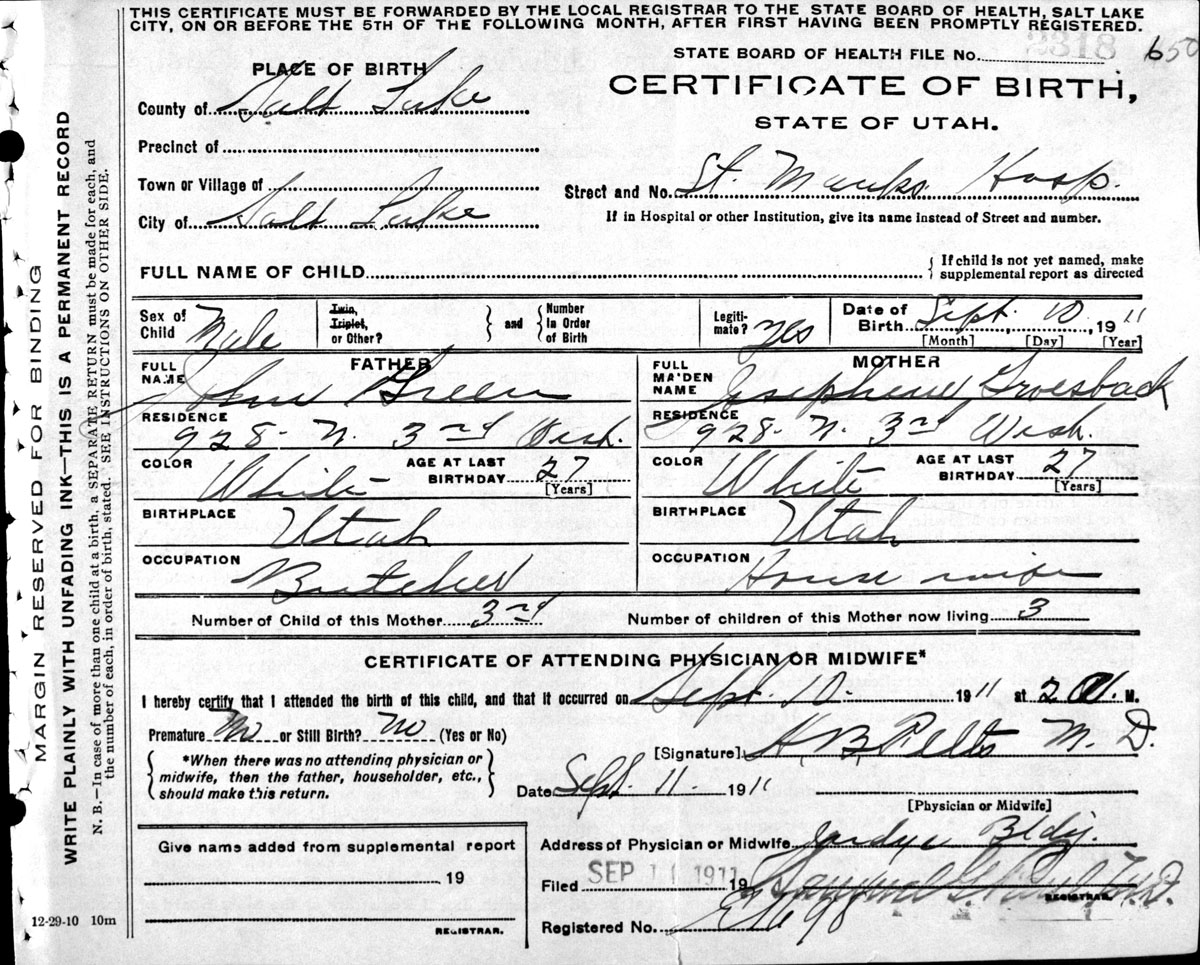 THIS CERTIFICATE MUST BE FORWARDED BY THE LOCAL REGISTRAR TO THE STATE BOARD OF HEALTH, SALT LAKE
CITY, ON OR BEFORE THE 5TH OF THE FOLLOWING MONTH, AFTER FIRST HAVING BEEN PROMPTLY REGISTERED.
STATE BOARD OF HEALTH FILE No. 650
PLACE OF BIRTH
CERTIFICATE OF BIRTH,
STATE OF UTAH.
County of Salt Lake
Precinct of
Town or Village of
City of Salt Lake
Street and No. St. Marks Hosp.
If in Hospital or other Institution, give its name instead of Street and number.
FULL NAME OF CHILD
{ If child is not yet named, make
supplemental report as directed
Sex of Child Male
Twin, Triplet, or Other?
and
Number In Order of Birth
Legiti-mate? Yes
Date of Birth Sept. 10, 1911
[Month] [Day] [Year]
FATHER
FULL NAME John Green
RESIDENCE 928- N. 3rd West.
COLOR White
AGE AT LAST BIRTHDAY 27
[Years]
BIRTHPLACE Utah
OCCUPATION Butcher
MOTHER
FULL MAIDEN NAME Josephine Groesback
RESIDENCE 928- N. 3rd West.
COLOR White
AGE AT LAST BIRTHDAY 27
[Years]
BIRTHPLACE Utah
OCCUPATION House wife
Number of Child of this Mother 3rd
Number of children of this Mother now living 3
CERTIFICATE OF ATTENDING PHYSICIAN OR MIDWIFE*
I hereby certify that I attended the birth of this child, and that it occurred on Sept. 10. 1911 at 2 M.
Premature No or Still Birth? No (Yes or No)
[Signature] H. B. M. D.
*When there was no attending physician or
midwife, then the father, householder, etc.,
should make this return.
Date Sept. 11. 1911
[Physician or Midwife]
Address of Physician or Midwife Bldg.
Give name added from supplemental report
19
REGISTRAR.
Filed SEP 11 1911 19
REGISTRAR.
Registered No.
12-29-10 10m
MARGIN RESERVED FOR BINDING
WRITE PLAINLY WITH UNFADING INK—THIS IS A PERMANENT RECORD
N. B.—In case of more than one child at a birth, a SEPARATE RETURN must be made for each, and
the number of each, in order of birth, stated. SEE INSTRUCTIONS ON OTHER SIDE.